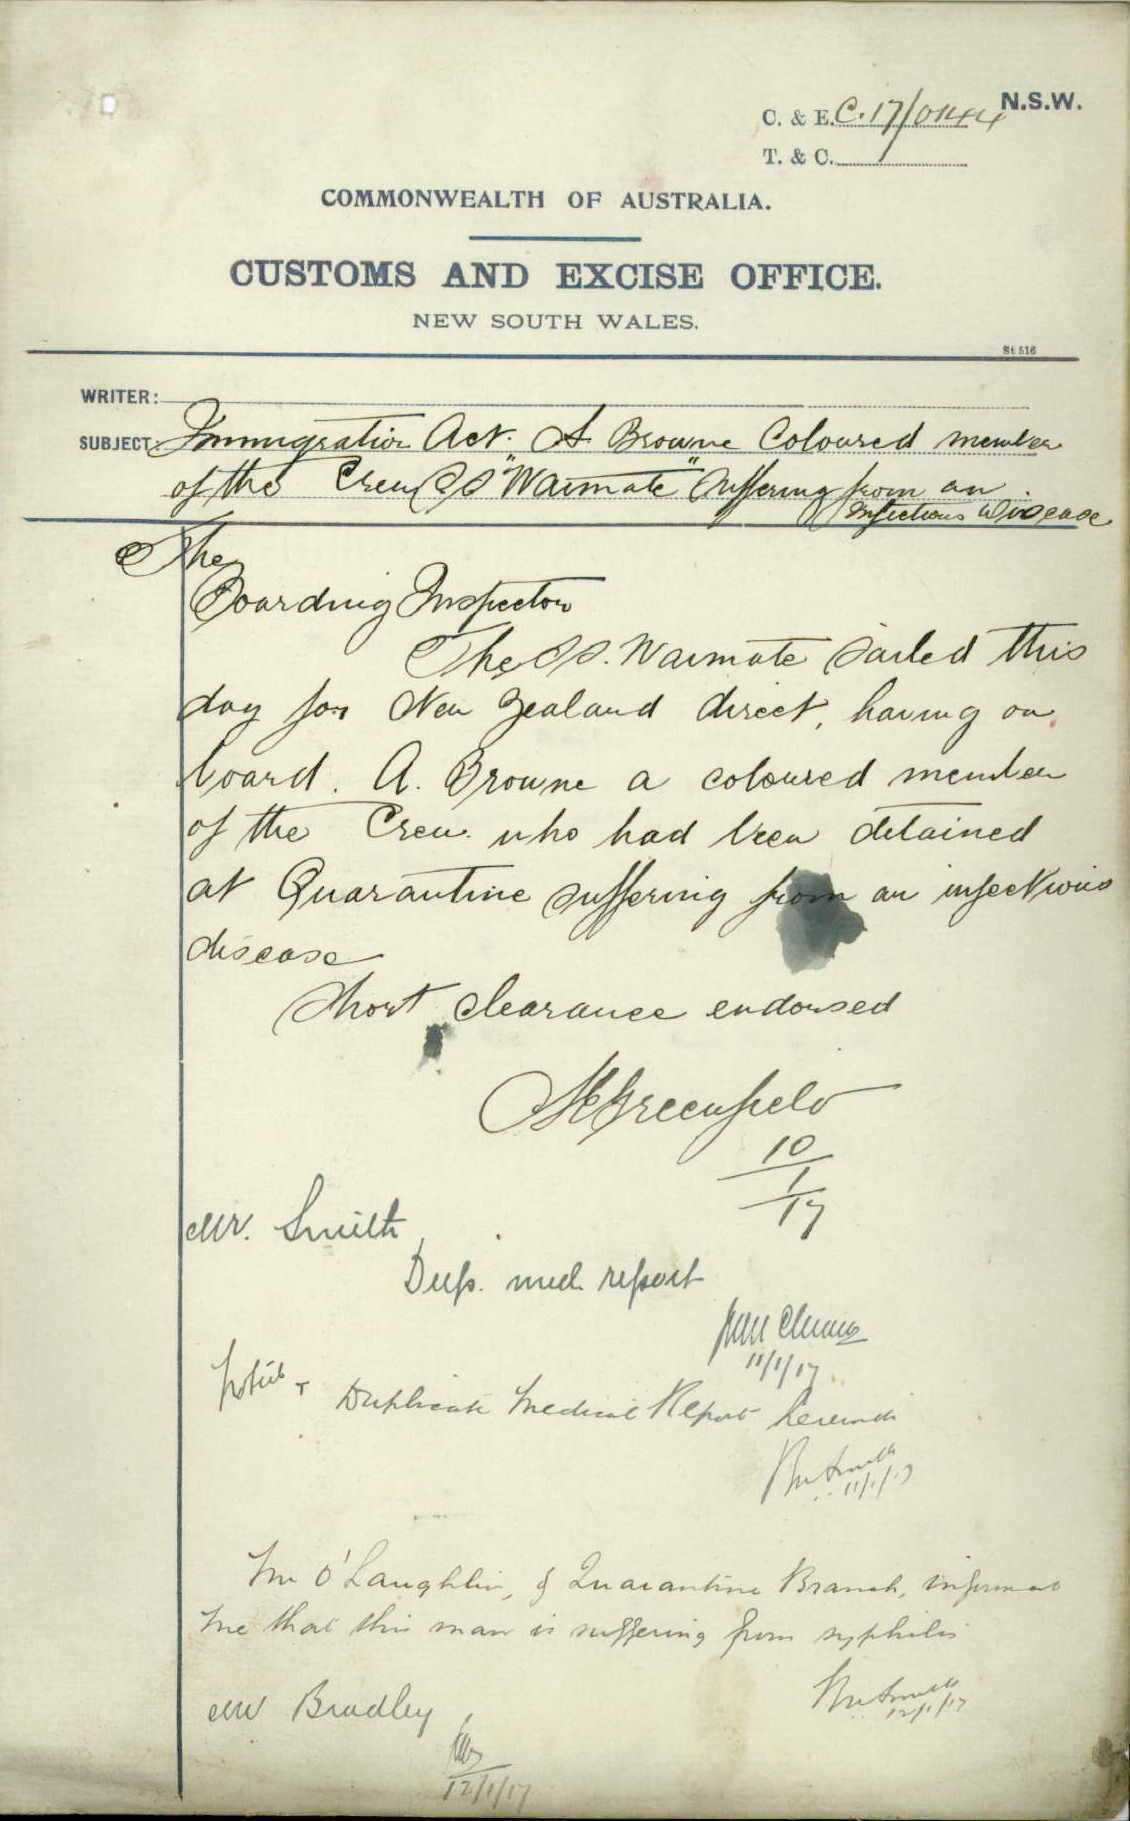 N.S.W.
C. & E. C.17/0144
T. & C.
COMMONWEALTH OF AUSTRALIA.
CUSTOMS AND EXCISE OFFICE.
NEW SOUTH WALES.
St.516
WRITER:
SUBJECT: Immigration Act. A Browne Coloured member
of the Crew SS "Waimate" Suffering from an
Infectious Disease
The
Boarding Inspector
The SS. Waimate Sailed this
day for New Zealand direct, having on
board. A. Browne a coloured member
of the Crew. who had been detained
at Quarantine suffering from an infectious
disease
Short clearance endorsed
Greenfield
10/1/17
Mr. Smith
Dup. med. report
11/1/17
Duplicate Medical Report herewith
Smith
11/1/17
Mr O'Laughlin, of Quarantine Branch, informs
me that this man is suffering from syphilis
Smith
12/1/17
Mr Bradley
12/1/17